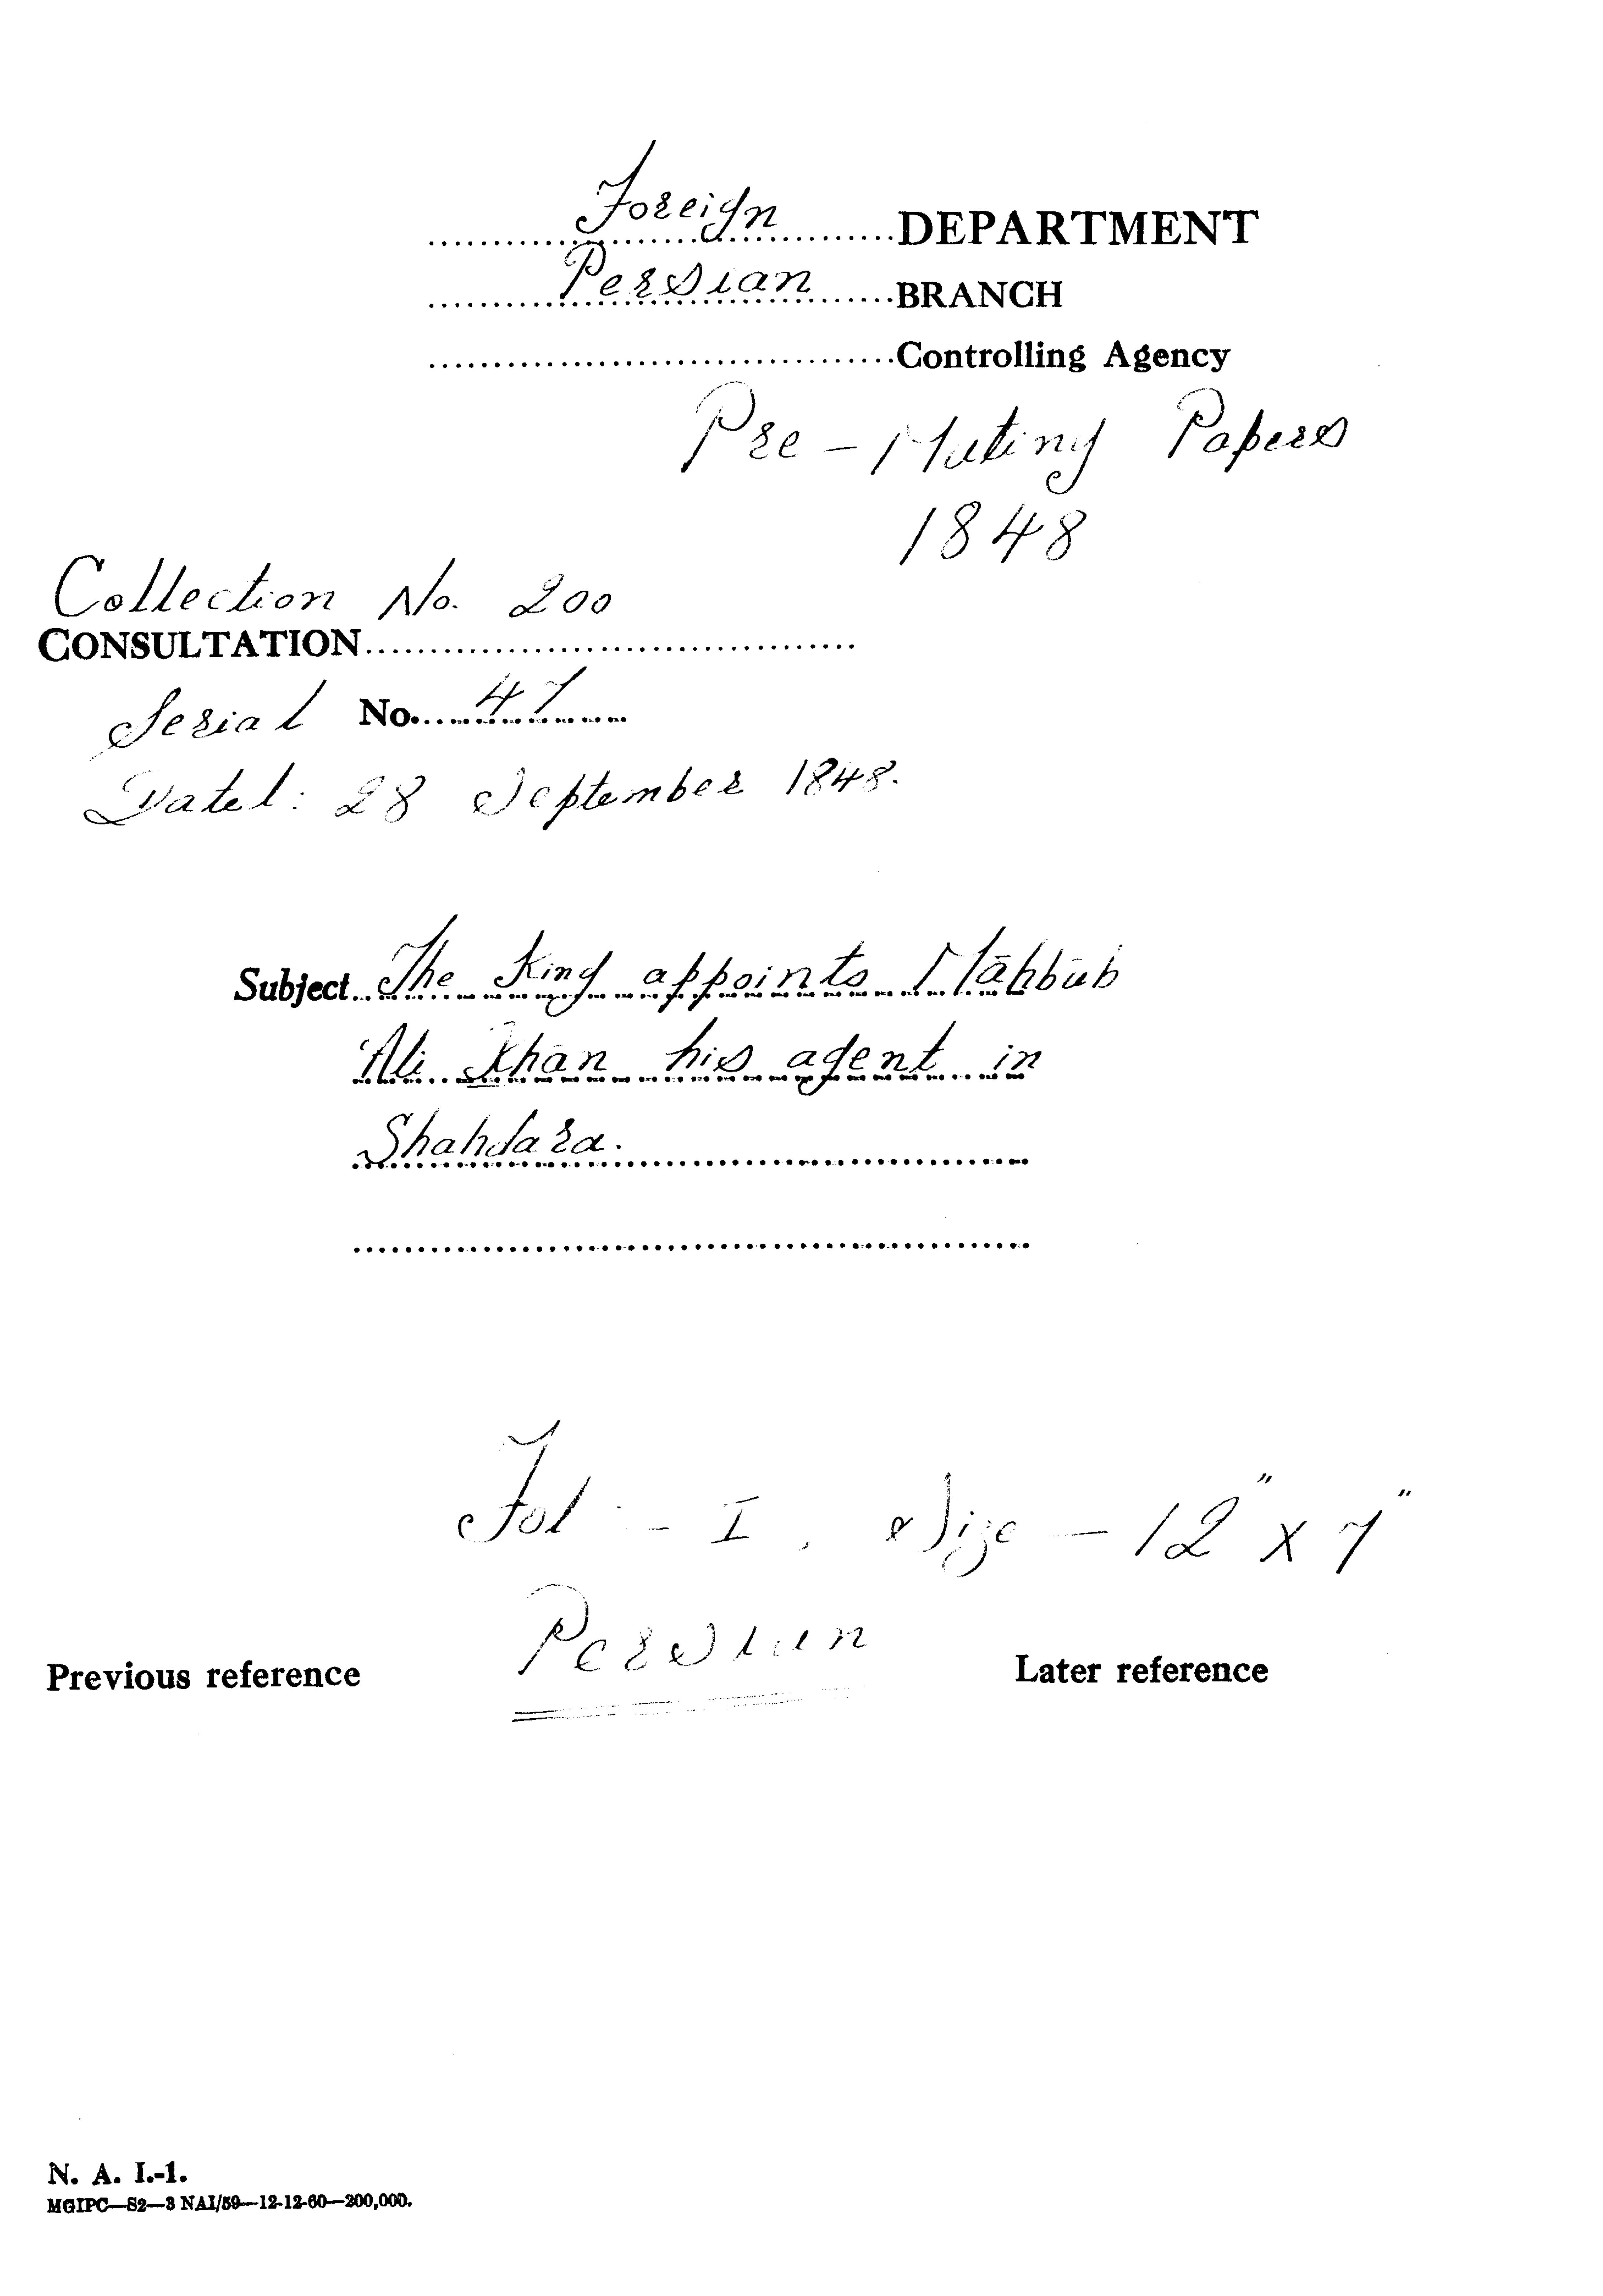 Foreign DEPARTMENT
Persian BRANCH
Controlling Agency
Pre-Mutiny Papers
1848
Collection No. 200
CONSULTATION
Serial No. 47
Dated: 28 September 1848.
Subject The King appoints Māhbūb
'Ali Khān his agent in
Shahdara.
Fol - I, Size - 12" x 7"
Persian
Previous reference Later reference
N. A. I.-1.
MGIPC—S2—3 NAI/59—12-12-60—200,000.